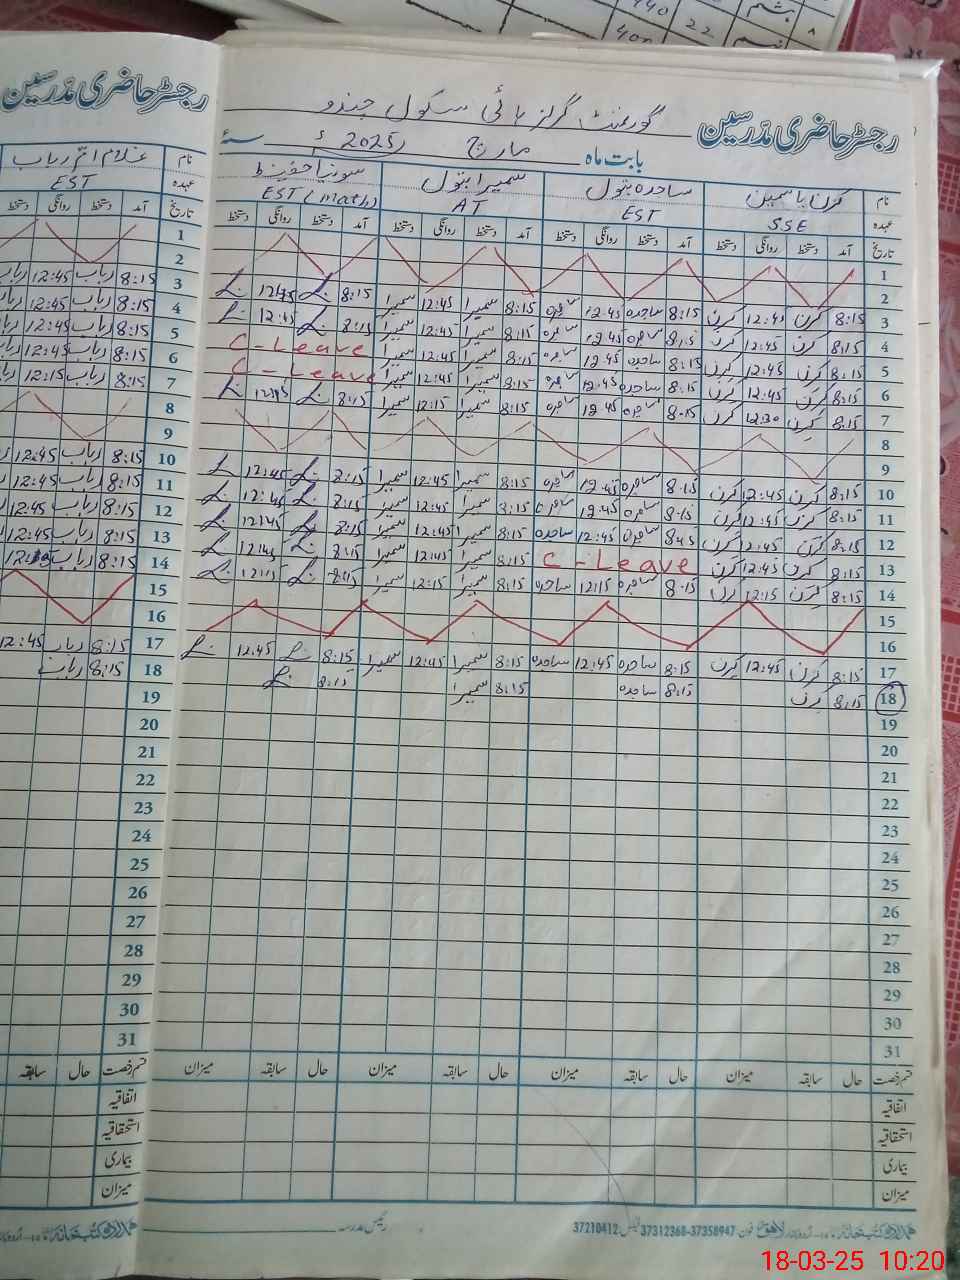 رجسٹر حاضری مدرسین
گورنمنٹ گرلز ہائی سکول جنڈو
رجسٹر حاضری مدرسین
بابت ماہ مارچ 2025ء سنہ
نام کرن یاسمین ساجدہ بتول سمیرا بتول سونیا حفیظ
عہدہ SSE EST AT EST (math)
تاریخ آمد دستخط روانگی دستخط آمد دستخط روانگی دستخط آمد دستخط روانگی دستخط آمد دستخط روانگی دستخط
1
2
3 8:15 کرن 12:45 کرن 8:15 ساجدہ 12:45 ساجدہ 8:15 سمیرا 12:45 سمیرا 8:15 12:45
4 8:15 کرن 12:45 کرن 8:15 ساجدہ 12:45 ساجدہ 8:15 سمیرا 12:45 سمیرا 8:15 12:45
5 8:15 کرن 12:45 کرن 8:15 ساجدہ 12:45 ساجدہ 8:15 سمیرا 12:45 سمیرا C-Leave
6 8:15 کرن 12:45 کرن 8:15 ساجدہ 12:45 ساجدہ 8:15 سمیرا 12:45 سمیرا C-Leave
7 8:15 کرن 12:30 کرن 8:15 ساجدہ 12:45 ساجدہ 8:15 سمیرا 12:15 سمیرا 8:15 12:45
8
9
10 8:15 کرن 12:45 کرن 8:15 ساجدہ 12:45 ساجدہ 8:15 سمیرا 12:45 سمیرا 8:15 12:45
11 8:15 کرن 12:45 کرن 8:15 ساجدہ 12:45 ساجدہ 8:15 سمیرا 12:45 سمیرا 8:15 12:45
12 8:15 کرن 12:45 کرن 8:45 ساجدہ 12:45 ساجدہ 8:15 سمیرا 12:45 سمیرا 8:15 12:45
13 8:15 کرن 12:45 کرن C-Leave 8:15 سمیرا 12:45 سمیرا 8:15 12:45
14 8:15 کرن 12:15 کرن 8:15 ساجدہ 12:15 ساجدہ 8:15 سمیرا 12:15 سمیرا 8:15 12:15
15
16
17 8:15 کرن 12:45 کرن 8:15 ساجدہ 12:45 ساجدہ 8:15 سمیرا 12:45 سمیرا 8:15 12:45
18 8:15 کرن 8:15 ساجدہ 8:15 سمیرا 8:15
19
20
21
22
23
24
25
26
27
28
29
30
31
قسم رخصت حال سابقہ میزان حال سابقہ میزان حال سابقہ میزان حال سابقہ میزان
اتفاقیہ
استحقاقیہ
بیماری
میزان
لاہور فون: 37358947-37312368 فیکس: 37210412
رئیس مدرسہ
نام
عہدہ EST
تاریخ آمد دستخط روانگی دستخط
1
2
3 8:15 رباب 12:45 رباب
4 8:15 رباب 12:45 رباب
5 8:15 رباب 12:45 رباب
6 8:15 رباب 12:45 رباب
7 8:15 رباب 12:15 رباب
8
9
10 8:15 رباب 12:45
11 8:15 رباب 12:45
12 8:15 رباب 12:45
13 8:15 رباب 12:45
14 8:15 رباب
15
16
17 8:15 رباب 12:45
18 8:15 رباب
19
20
21
22
23
24
25
26
27
28
29
30
31
قسم رخصت حال سابقہ
اتفاقیہ
استحقاقیہ
بیماری
میزان
18-03-25 10:20